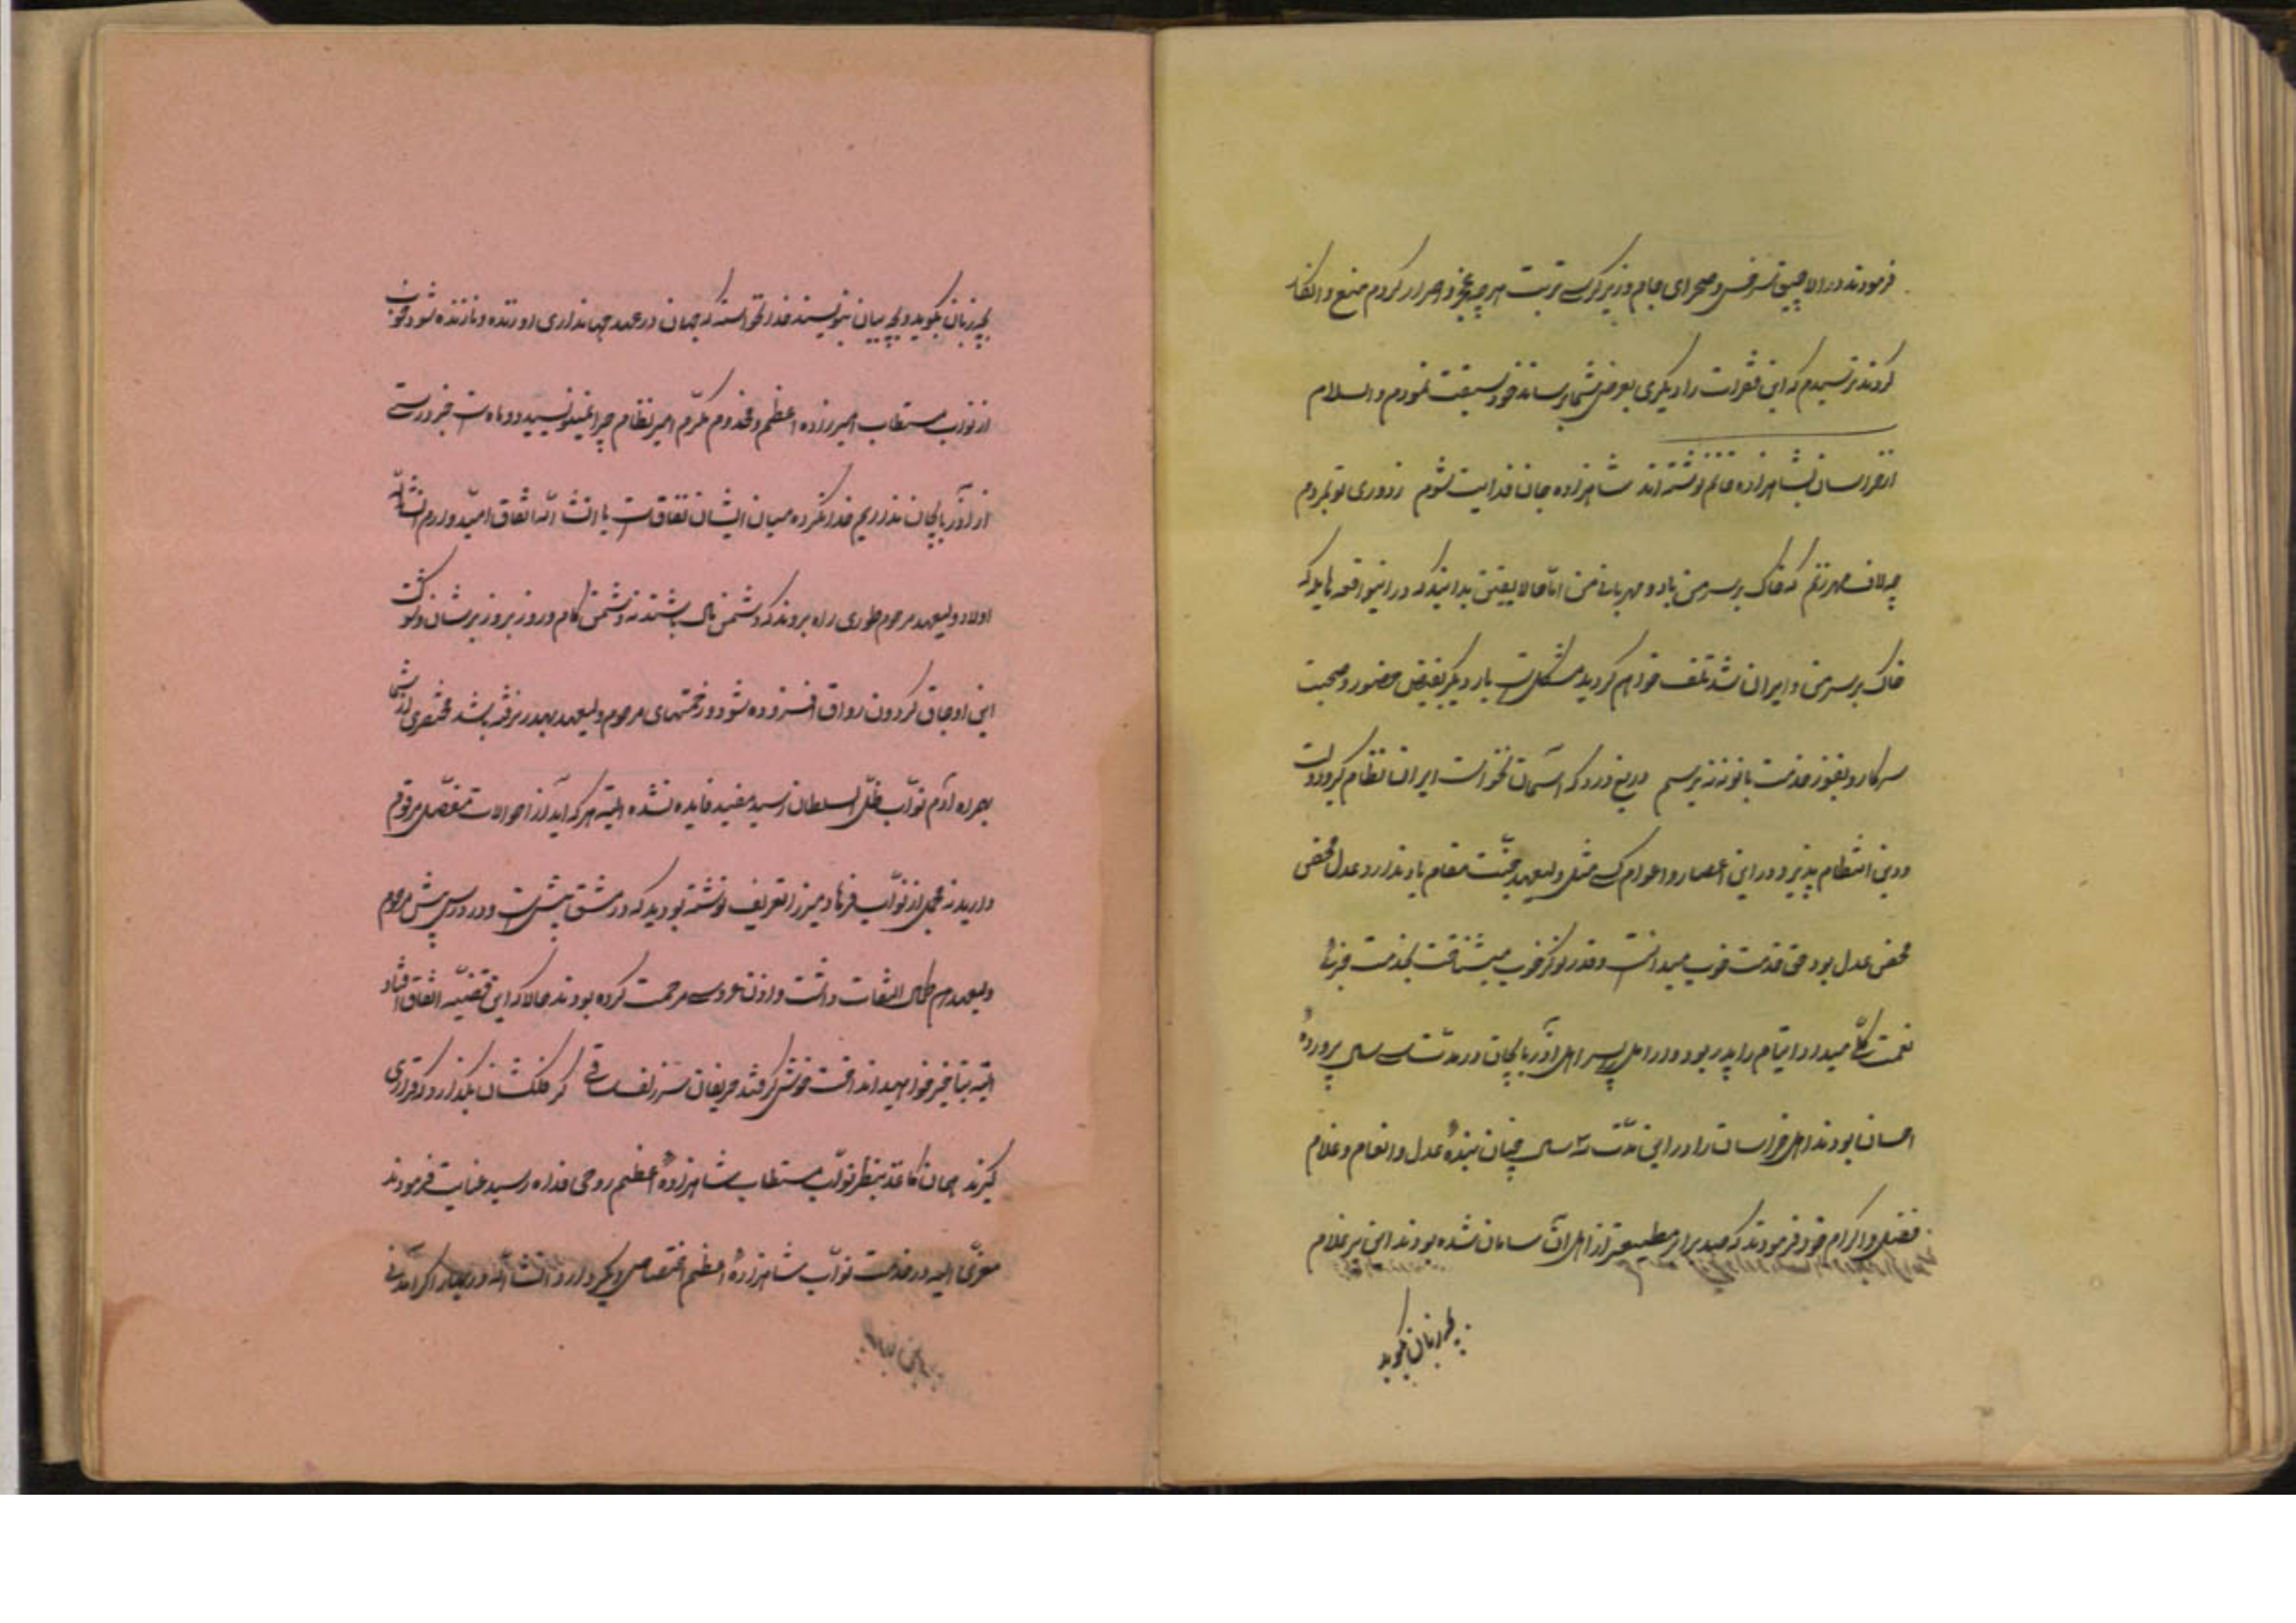 فرمودند در الاچیق سرخس و صحرای جام و زیر کرسی تربت هر چه عجز و اصرار کردم منع و انکار
کردند ترسیدم که این فقرات را دیگری بعرض شما برساند خود سبقت نمودم والسلام
از خراسان بشاهزاده خانم نوشته‌اند شاهزاده جان فدایت شوم ز دوری تو نمردم
چه لاف مهر زنم که خاک بر سر من باد و مهربانی من اما حالا یقین بدانید که در این واقعه هایله که
خاک بر سر من و ایران شد تلف خواهم گردید مشکل است بار دیگر بفیض حضور و صحبت
سرکار و بفوز خدمت بانو ننه برسم دریغ و درد که آسمان نخواست ایران نظام گیرد و دولت
و دین انتظام پذیرد در این اعصار و اعوام کسی مثل ولیعهد جنت مقام یاد ندارد عدل محض
محض عدل بود حق خدمت خوب میدانست و قدر نوکر خوب میشناخت بخدمت جزئی
نعمت کلی میداد ایتام را پدر بود و ارامل را پسر اهل آذربایجان در مدت سی سال پرورده
احسان بودند اهل خراسان را در این مدت سه سال چنان بنده عدل و انعام و غلام
فضل و اکرام خود فرمودند که صد برابر مطیع‌تر از اهل آن سامان شده بودند این پیر غلام
بچه زبان بگوید
بچه زبان بگوید و بچه بیان بنویسد خدا نخواسته که جهان در عهد جهانداری او زنده و نازنده شود خوب
از نواب مستطاب امیرزاده اعظم و مخدوم مکرم امیرنظام چرا نمینویسید دو ماه است خبر درستی
از آذربایجان نداریم خدا نکرده میان ایشان نفاق است یا انشاء الله اتفاق امیدوارم انشاء الله
اولاد ولیعهد مرحوم طوری راه بروند که دشمن مال باشند نه دشمن کام و روز بروز بر شأن و شوکت
این اوجاق گردون رواق افزوده شود و زحمتهای مرحوم ولیعهد بهدر نرفته باشد مختصری که از شما
بهمراه آدم نواب ظل السلطان رسید مفید فایده نشده البته هر که آید از احوالات مفصل مرقوم
دارید نه مجمل از نواب فرهاد میرزا تعریف نوشته بودید که در مشق بیش است و در درس پیش مرحوم
ولیعهد هم کمال التفات داشت و اذن عروسی مرحمت کرده بودند حالا که این قضیه اتفاق افتاد
البته بتأخیر خواهید انداخت خوش گرفتند حریفان سر زلف ساقی گر فلکشان بگذارد که قراری
گیرند همان کاغذ بنظر نواب مستطاب شاهزاده اعظم روحی فداه رسید عنایت فرمودند
معزی الیه در خدمت نواب شاهزاده اعظم اختصاص دیگر دارد انشاء الله در بهار اگر آمدنی